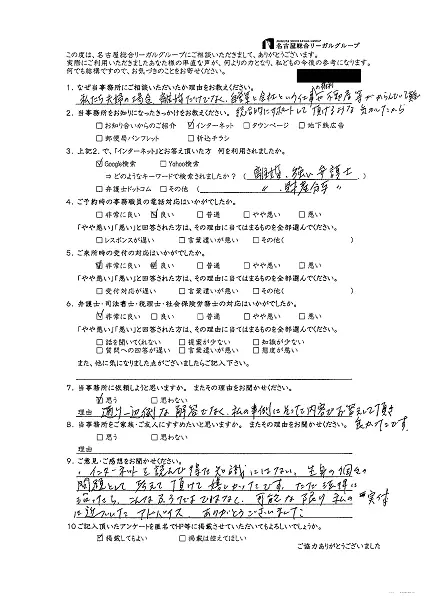 名古屋総合リーガルグループ
この度は、名古屋総合リーガルグループにご相談いただきまして、ありがとうございます。
実際にご利用いただきましたあなた様の率直な声が、何よりの力となり、私どもの今後の参考になります。
何でも結構ですので、お気づきのことをお寄せください。
1. なぜ当事務所にご相談いただいたか理由をお教えください。
私たち夫婦の場合、離婚だけでなく、
2. 当事務所をお知りになったきっかけをお教えください。
総合的にサポートして頂ける
□お知り合いからのご紹介 ☑インターネット □タウンページ □地下鉄広告
□郵便局パンフレット □折込チラシ
3. 上記2.で、「インターネット」とお答えい頂いた方 何を利用されましたか。
☑Google検索 □Yahoo検索
⇒どのようなキーワードで検索されましたか?( 離婚、強い弁護士
□弁護士ドットコム □その他 ( 〃 財産分与 〃 )
4. ご予約時の事務職員の電話対応はいかがでしたか。
□非常に良い ☑良い □普通 □やや悪い □悪い
「やや悪い」「悪い」と回答された方は、その理由に当てはまるものを全部選んでください。
□レスポンスが遅い □言葉遣いが悪い □その他( )
5. ご来所時の受付の対応はいかがでしたか。
☑非常に良い ☑良い □普通 □やや悪い □悪い
「やや悪い」「悪い」と回答された方は、その理由に当てはまるものを全部選んでください。
□受付対応が遅い □言葉遣いが悪い □その他( )
6. 弁護士・司法書士・税理士・社会保険労務士の対応はいかがでしたか。
☑非常に良い □良い □普通 □やや悪い □悪い
「やや悪い」「悪い」と回答された方は、その理由に当てはまるものを全部選んでください。
□話を聞いてくれない □提案が少ない □知識が少ない
□質問への回答が遅い □言葉遣いが悪い □態度が悪い
また、他に気になりました点がございましたらご記入下さい。
7. 当事務所に依頼しようと思いますか。またその理由をお聞かせください。
☑思う □思わない
理由 通り一辺倒な解答でなく、私の事例にそった内容でお答えして頂き
8. 当事務所をご家族・ご友人にすすめたいと思いますか。またその理由をお聞かせください。 良かったです。
□思う □思わない
理由
9. ご意見・ご感想をお聞かせください。
・インターネットを読んで得た知識にはない、生身の個々の
問題として答えて頂けて嬉しかったです。ただ法律に
こんなふうだではなく、可能な限り私の実体
に近づいたアドバイス、ありがとうございました。
10.ご記入頂いたアンケートを匿名でHP等に掲載させていただいてもよろしいでしょうか。
☑掲載してもよい □掲載は控えてほしい
ご協力ありがとうございました